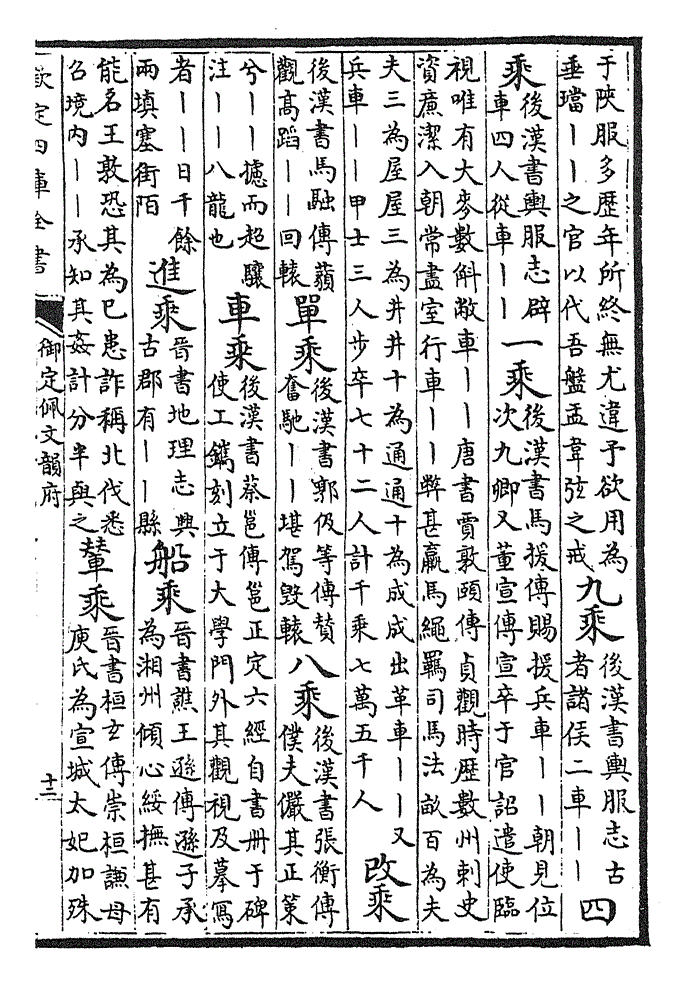 于陝服多歷年所終無尤違予欲用為
垂璫丨丨之官以代吾盤盂韋弦之戒
九乘
後漢書輿服志古
者諸侯二車丨丨
四
乘
後漢書輿服志辟
車四人從車丨丨
一乘
後漢書馬援傳賜援兵車丨丨朝見位
次九卿又董宣傳宣卒于官詔遣使臨
視唯有大麥數斛敝車丨丨唐書賈敦頤傳貞觀時歷數州刺史
資廉潔入朝常盡室行車丨丨弊甚羸馬繩羈司馬法畝百為夫
夫三為屋屋三為井井十為通通十為成成出革車丨丨又
兵車丨丨甲士三人步卒七十二人計千乘七萬五千人
改乘
後漢書馬融傳蘋
觀髙蹈丨丨回轅
單乘
後漢書郭伋等傳贊
奮馳丨丨堪駕毀轅
八乘
後漢書張衡傳
僕夫儼其正策
兮丨丨攄而超驤
注丨丨八龍也
車乘
後漢書蔡邕傳邕正定六經自書册于碑
使工鐫刻立于大學門外其觀視及摹寫
者丨丨日千餘
兩填塞街陌
進乘
晉書地理志興
古郡有丨丨縣
船乘
晉書譙王遜傳遜子承
為湘州傾心綏撫甚有
能名王敦恐其為已患詐稱北伐悉
召境内丨丨承知其姦計分半與之
輦乘
晉書桓玄傳崇桓謙母
庾氏為宣城太妃加殊
欽定四庫全書
御定佩文韻府
十二